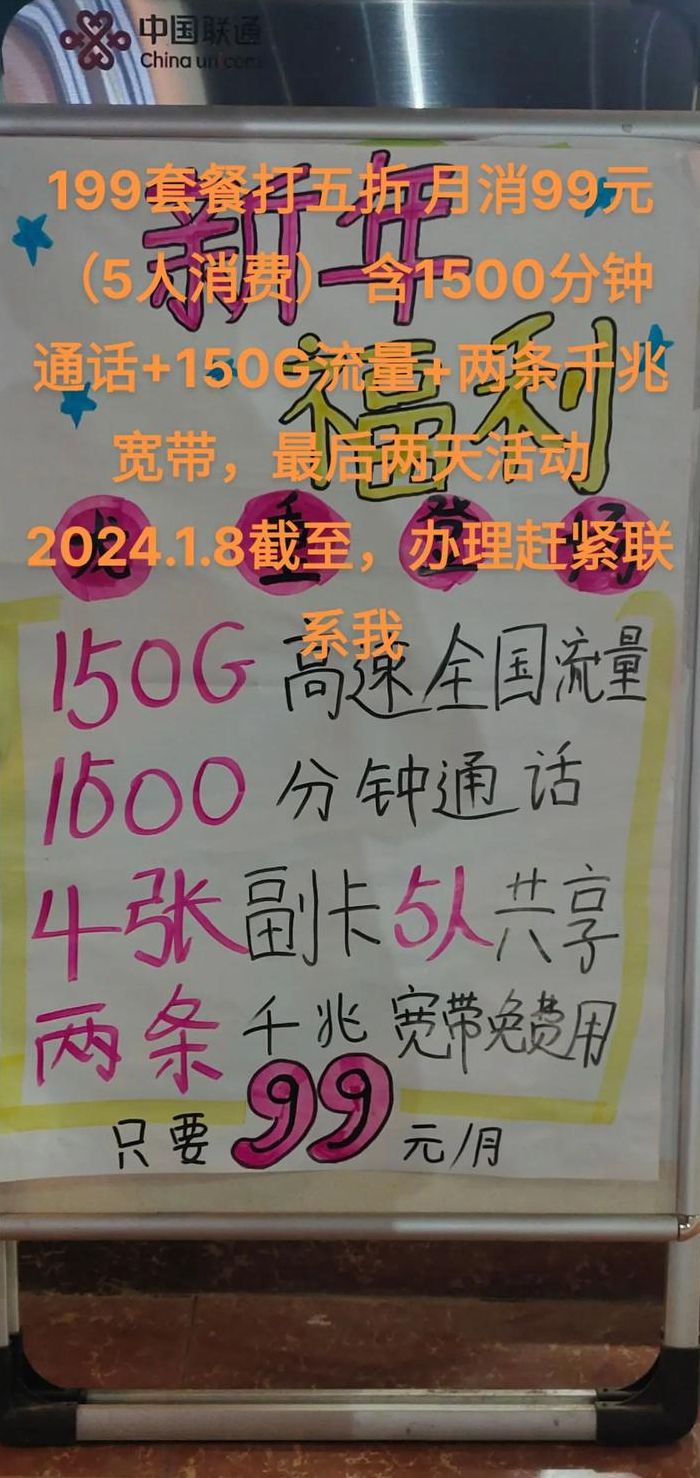 中国联通
China unicom
199套餐打五折 月消99元
（5人消费） 含1500分钟
通话+150G流量+两条千兆
宽带，最后两天活动
2024.1.8截至，办理赶紧联
系我
新年
福利
龙重登场
150G 高速全国流量
1500 分钟通话
4张副卡5人共享
两条千兆宽带免费用
只要99元/月